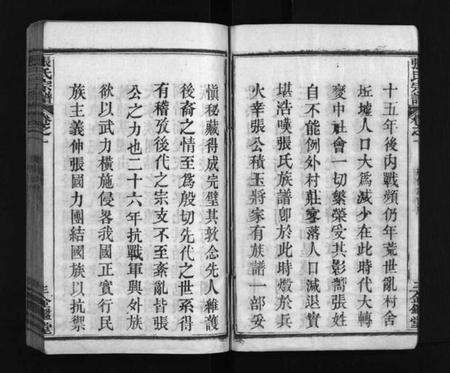 十五年後內戰頻仍年荒世亂村舍
坵墟人口大為減少在此時代大轉
變中社會一切繁榮受其影嚮張姓
自不能例外村莊寥落人口減退實
堪浩嘆張氏族譜卽於此時燬於兵
火幸張公積玉將家有族譜一部妥
慎秘藏得成完璧其敦念先人維護
後裔之情至為殷切先代之世系得
有稽攷後代之宗支不至紊亂皆張
公之力也二十六年抗戰軍興外族
欲以武力橫施侵畧我國正實行民
族主義伸張國力團結國族以抗禦
張氏宗譜
卷之一
三金鑑堂